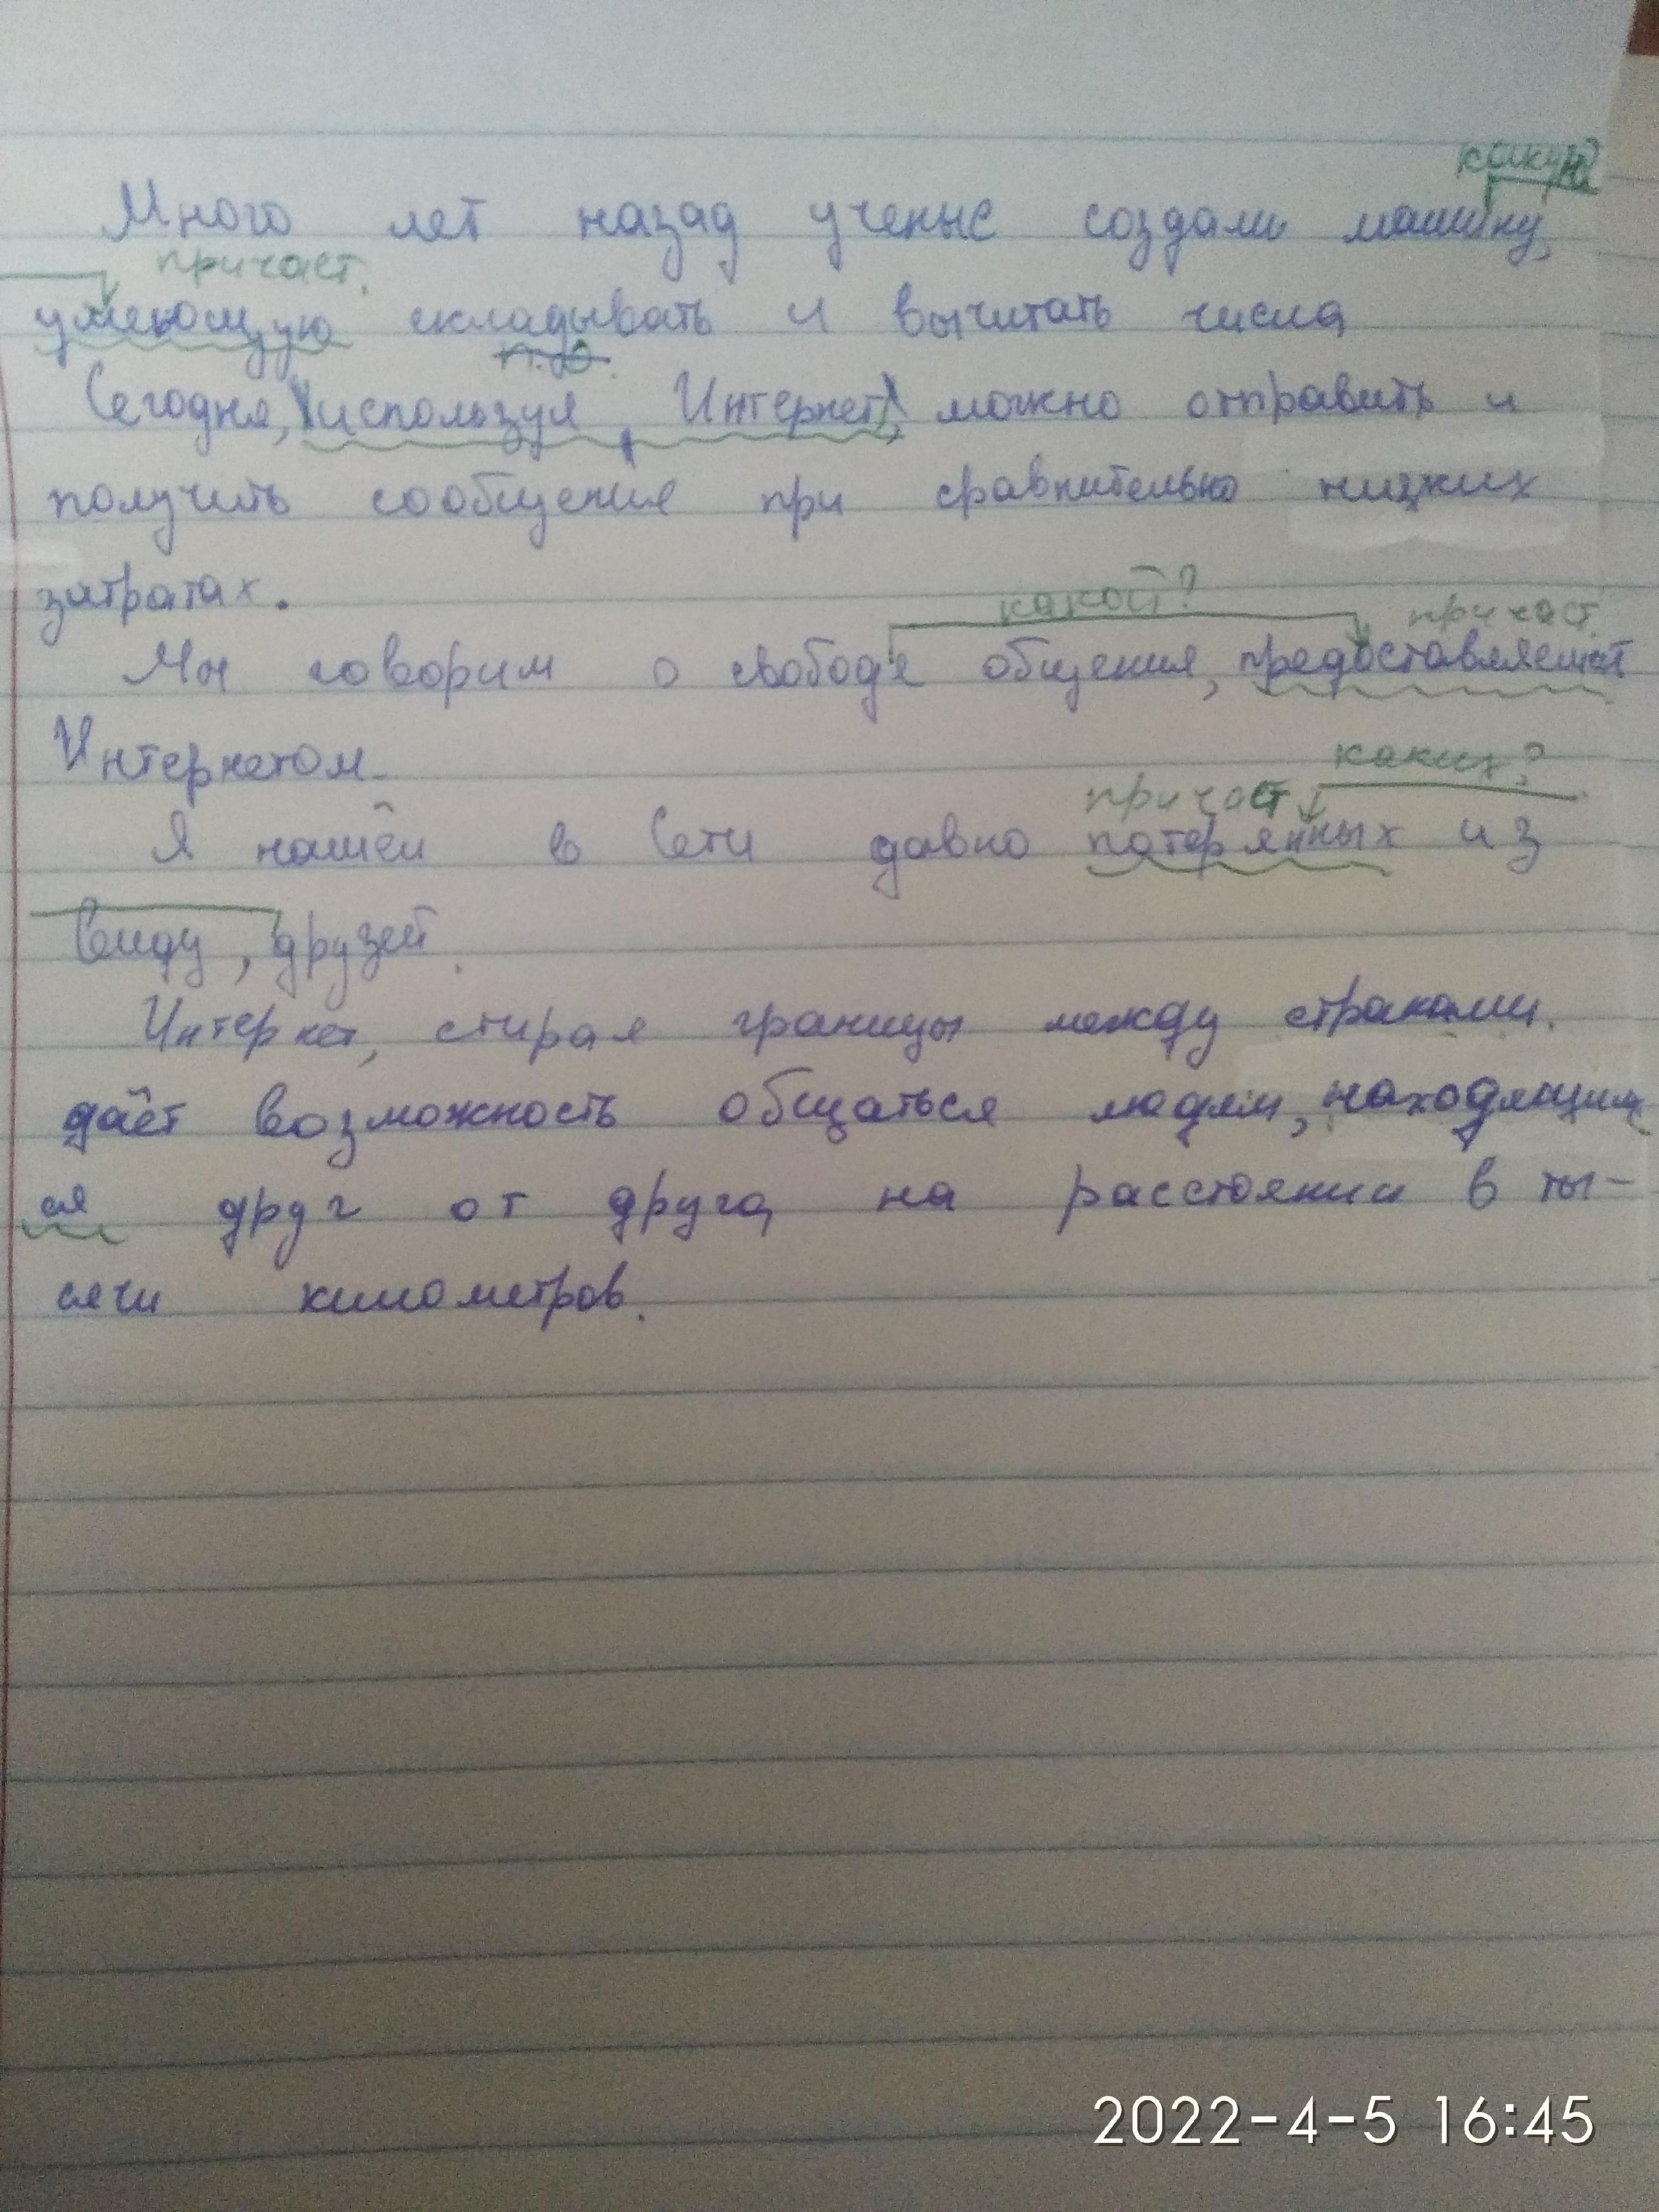 какую
Много лет назад ученые создали машину,
причаст.
умеющую складывать и вычитать числа
п.о.
Сегодня, используя Интернет, можно отправить и
получить сообщения при сравнительно низких
затратах.
какой? причаст.
Мы говорим о свободе общения, предоставляемой
Интернетом.
каких?
причаст
Я нашёл в Сети давно потерянных из
виду, друзей.
Интернет, стирая границы между странами.
даёт возможность общаться людям, находящим
ся друг от друга на расстоянии в ты-
сячи километров.
2022-4-5 16:45